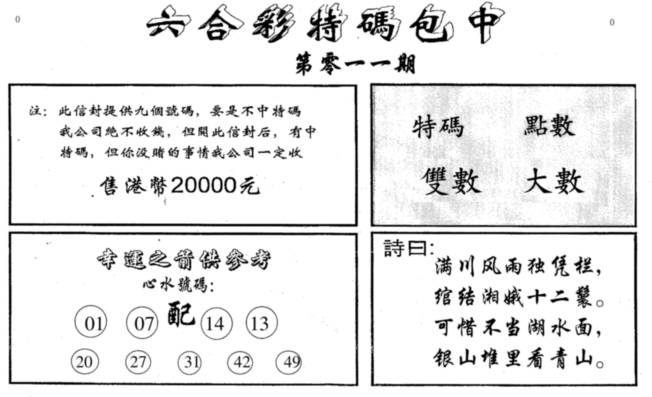 0
0
六合彩特碼包中
第零一一期
注：此信封提供九個號碼，要是不中特碼
我公司绝不收錢，但開此信封后，有中
特碼，但你没賭的事情我公司一定收
售港幣20000元
特碼 點數
雙數 大數
幸運之箭供參考
心水號碼：
01 07 配 14 13
20 27 31 42 49
詩曰：
满川风雨独凭栏，
绾结湘娥十二鬟。
可惜不当湖水面，
银山堆里看青山。